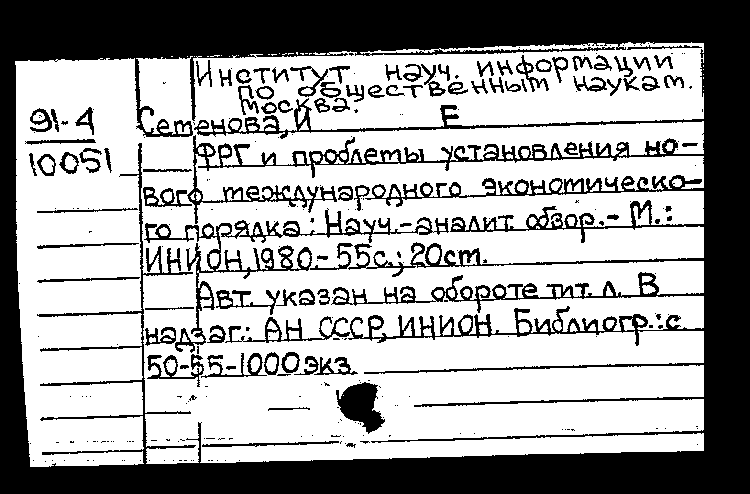 Институт науч. информации
по общественным наукам.
Москва.
91-4
10051
Семенова, И Е
ФРГ и проблемы установления но-
вого международного экономическо-
го порядка: Науч.-аналит. обзор.- М.:
ИНИОН, 1980.- 55с.; 20см.
Авт. указан на обороте тит. л. В
надзаг.: АН СССР, ИНИОН. Библиогр.: с
50-55-1000 экз.